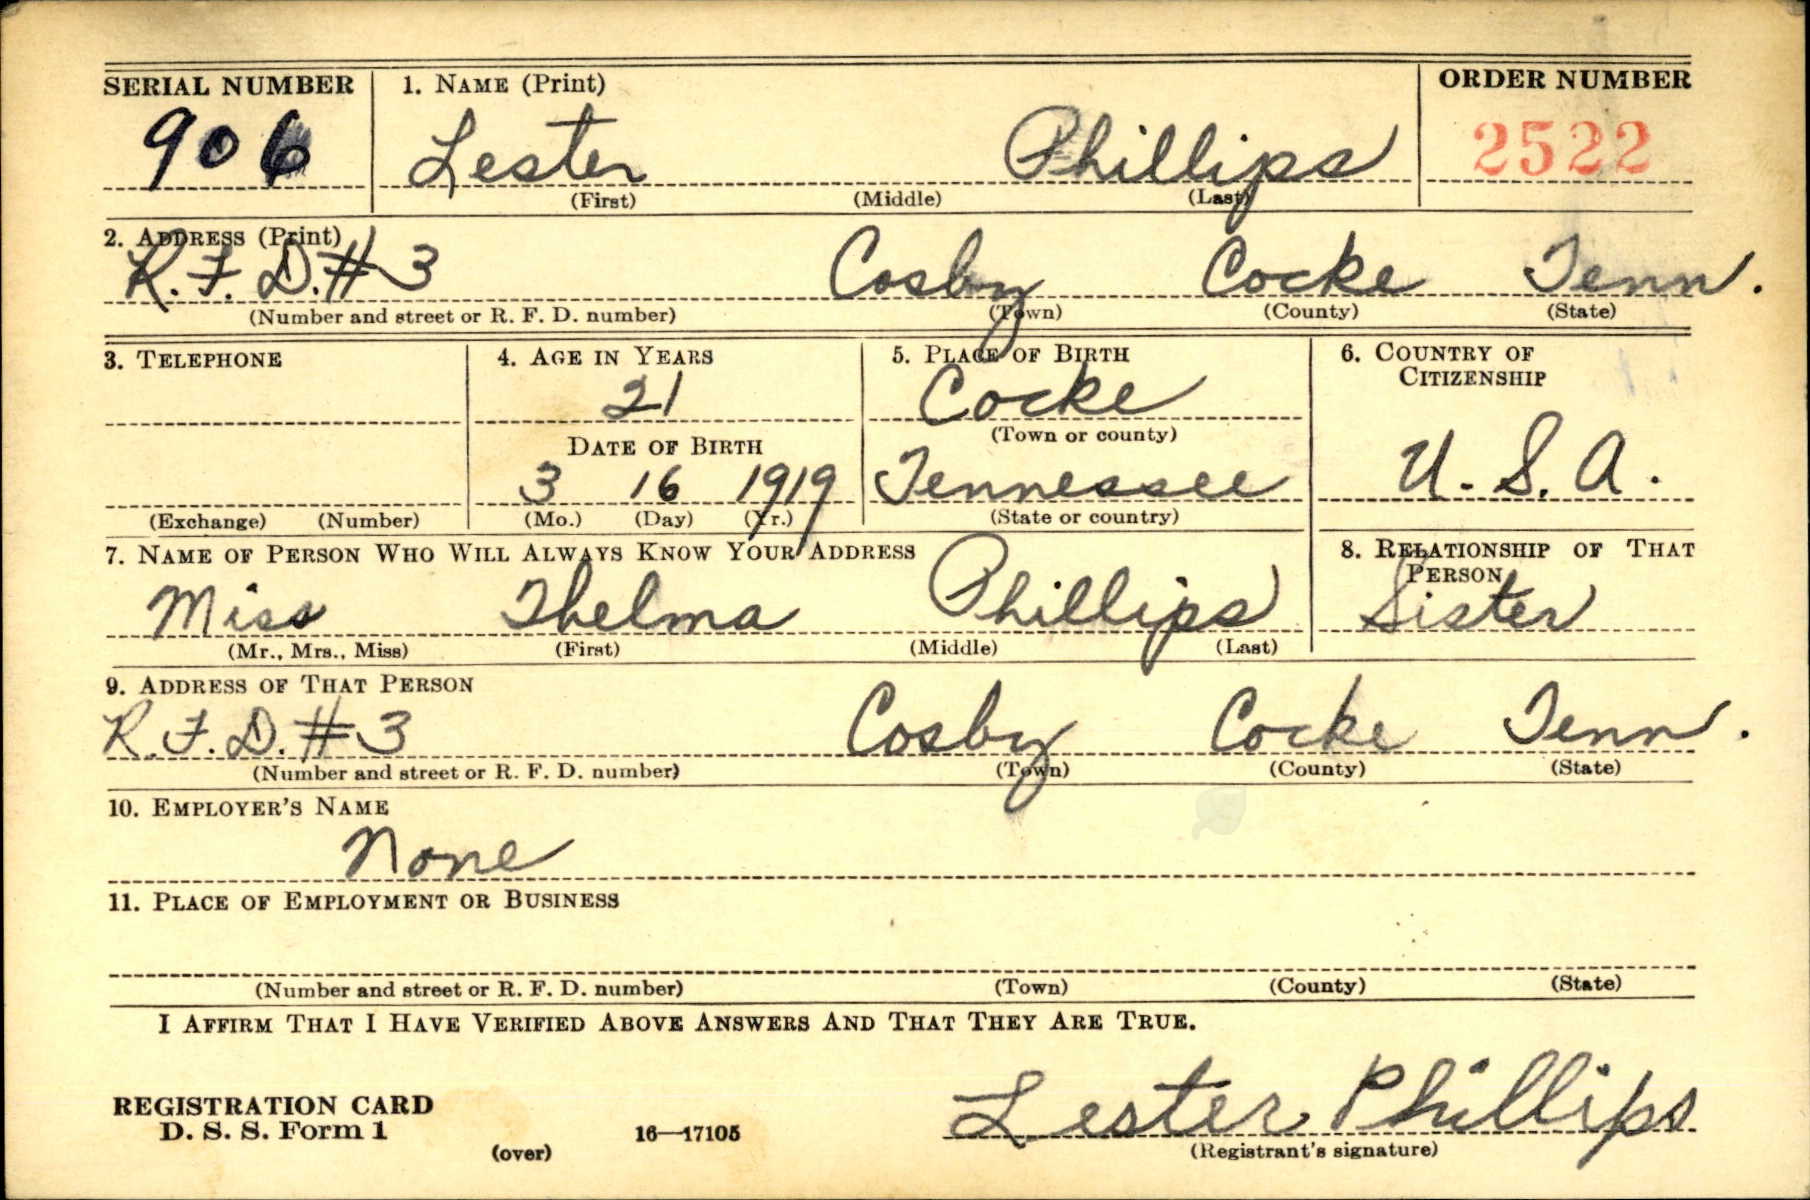 SERIAL NUMBER 1. NAME (Print) ORDER NUMBER
906 Lester Phillips 2522
(First) (Middle) (Last)
2. ADDRESS (Print)
R. F. D. # 3 Cosby Cocke Tenn.
(Number and street or R. F. D. number) (Town) (County) (State)
3. TELEPHONE 4. AGE IN YEARS 5. PLACE OF BIRTH 6. COUNTRY OF CITIZENSHIP
21 Cocke
(Town or county)
DATE OF BIRTH
3 16 1919 Tennessee U. S. A.
(Exchange) (Number) (Mo.) (Day) (Yr.) (State or country)
7. NAME OF PERSON WHO WILL ALWAYS KNOW YOUR ADDRESS 8. RELATIONSHIP OF THAT PERSON
Miss Thelma Phillips Sister
(Mr., Mrs., Miss) (First) (Middle) (Last)
9. ADDRESS OF THAT PERSON
R. F. D. # 3 Cosby Cocke Tenn.
(Number and street or R. F. D. number) (Town) (County) (State)
10. EMPLOYER'S NAME
None
11. PLACE OF EMPLOYMENT OR BUSINESS
(Number and street or R. F. D. number) (Town) (County) (State)
I AFFIRM THAT I HAVE VERIFIED ABOVE ANSWERS AND THAT THEY ARE TRUE.
REGISTRATION CARD
D. S. S. Form 1 16—17105 Lester Phillips
(over) (Registrant's signature)